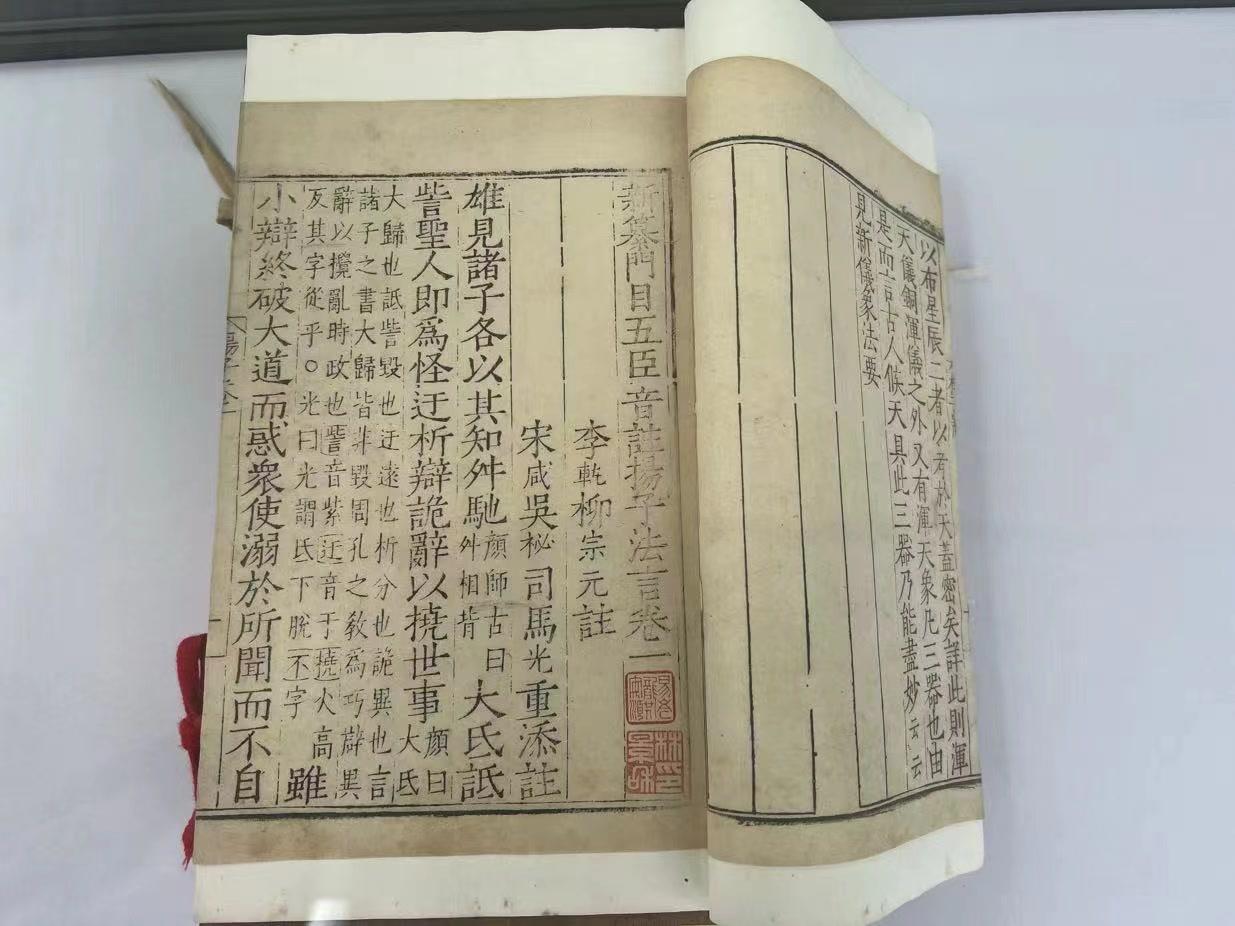 以布星辰二者以考於天蓋密矣詳此則渾
天儀銅渾儀之外又有渾天象凡三器也由
是而言古人候天具此三器乃能盡妙云云
見新儀象法要
新纂門目五臣音註揚子法言卷一
李軏柳宗元註
宋咸吳祕司馬光重添註
雄見諸子各以其知舛馳顏師古曰舛相背大氐詆
訾聖人即爲怪迂析辯詭辭以撓世事顏曰大氐
大歸也詆訾毀也迂遠也析分也詭異也言
諸子之書大歸皆非毀周孔之教爲巧辟異
辭以攪亂時政也訾音紫迂音于撓火高
反其字從乎○光曰光謂氐下脫不字雖
小辯終破大道而惑衆使溺於所聞而不自